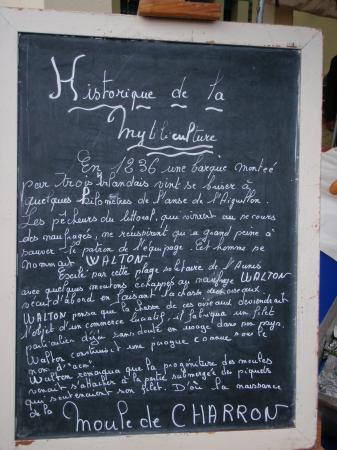 Historique de la
Mytiliculture
En 1236 une barque montée
par trois Irlandais vint se briser à
quelques kilomètres de l'anse de l'Aiguillon.
Les pêcheurs du littoral, qui vinrent au secours
des naufragés, ne réussirent qu'à grand peine à
sauver le patron de l'équipage. Cet homme se
nommait WALTON
Exilé par cette plage solitaire de l'Aunis
avec quelques moutons échappés au naufrage WALTON
vécut d'abord en faisant la chasse aux oiseaux.
WALTON pensa que la chasse de ces oiseaux deviendrait
l'objet d'un commerce lucratif, il fabriqua un filet
particulier déjà sans doute en usage dans son pays.
Walton construisit une pirogue connue sous le
nom d'"acon".
Walton remarqua que la progéniture des moules
venait s'attacher à la partie submergée des piquets
qui soutenaient son filet. D'où la naissance
de la Moule de CHARRON